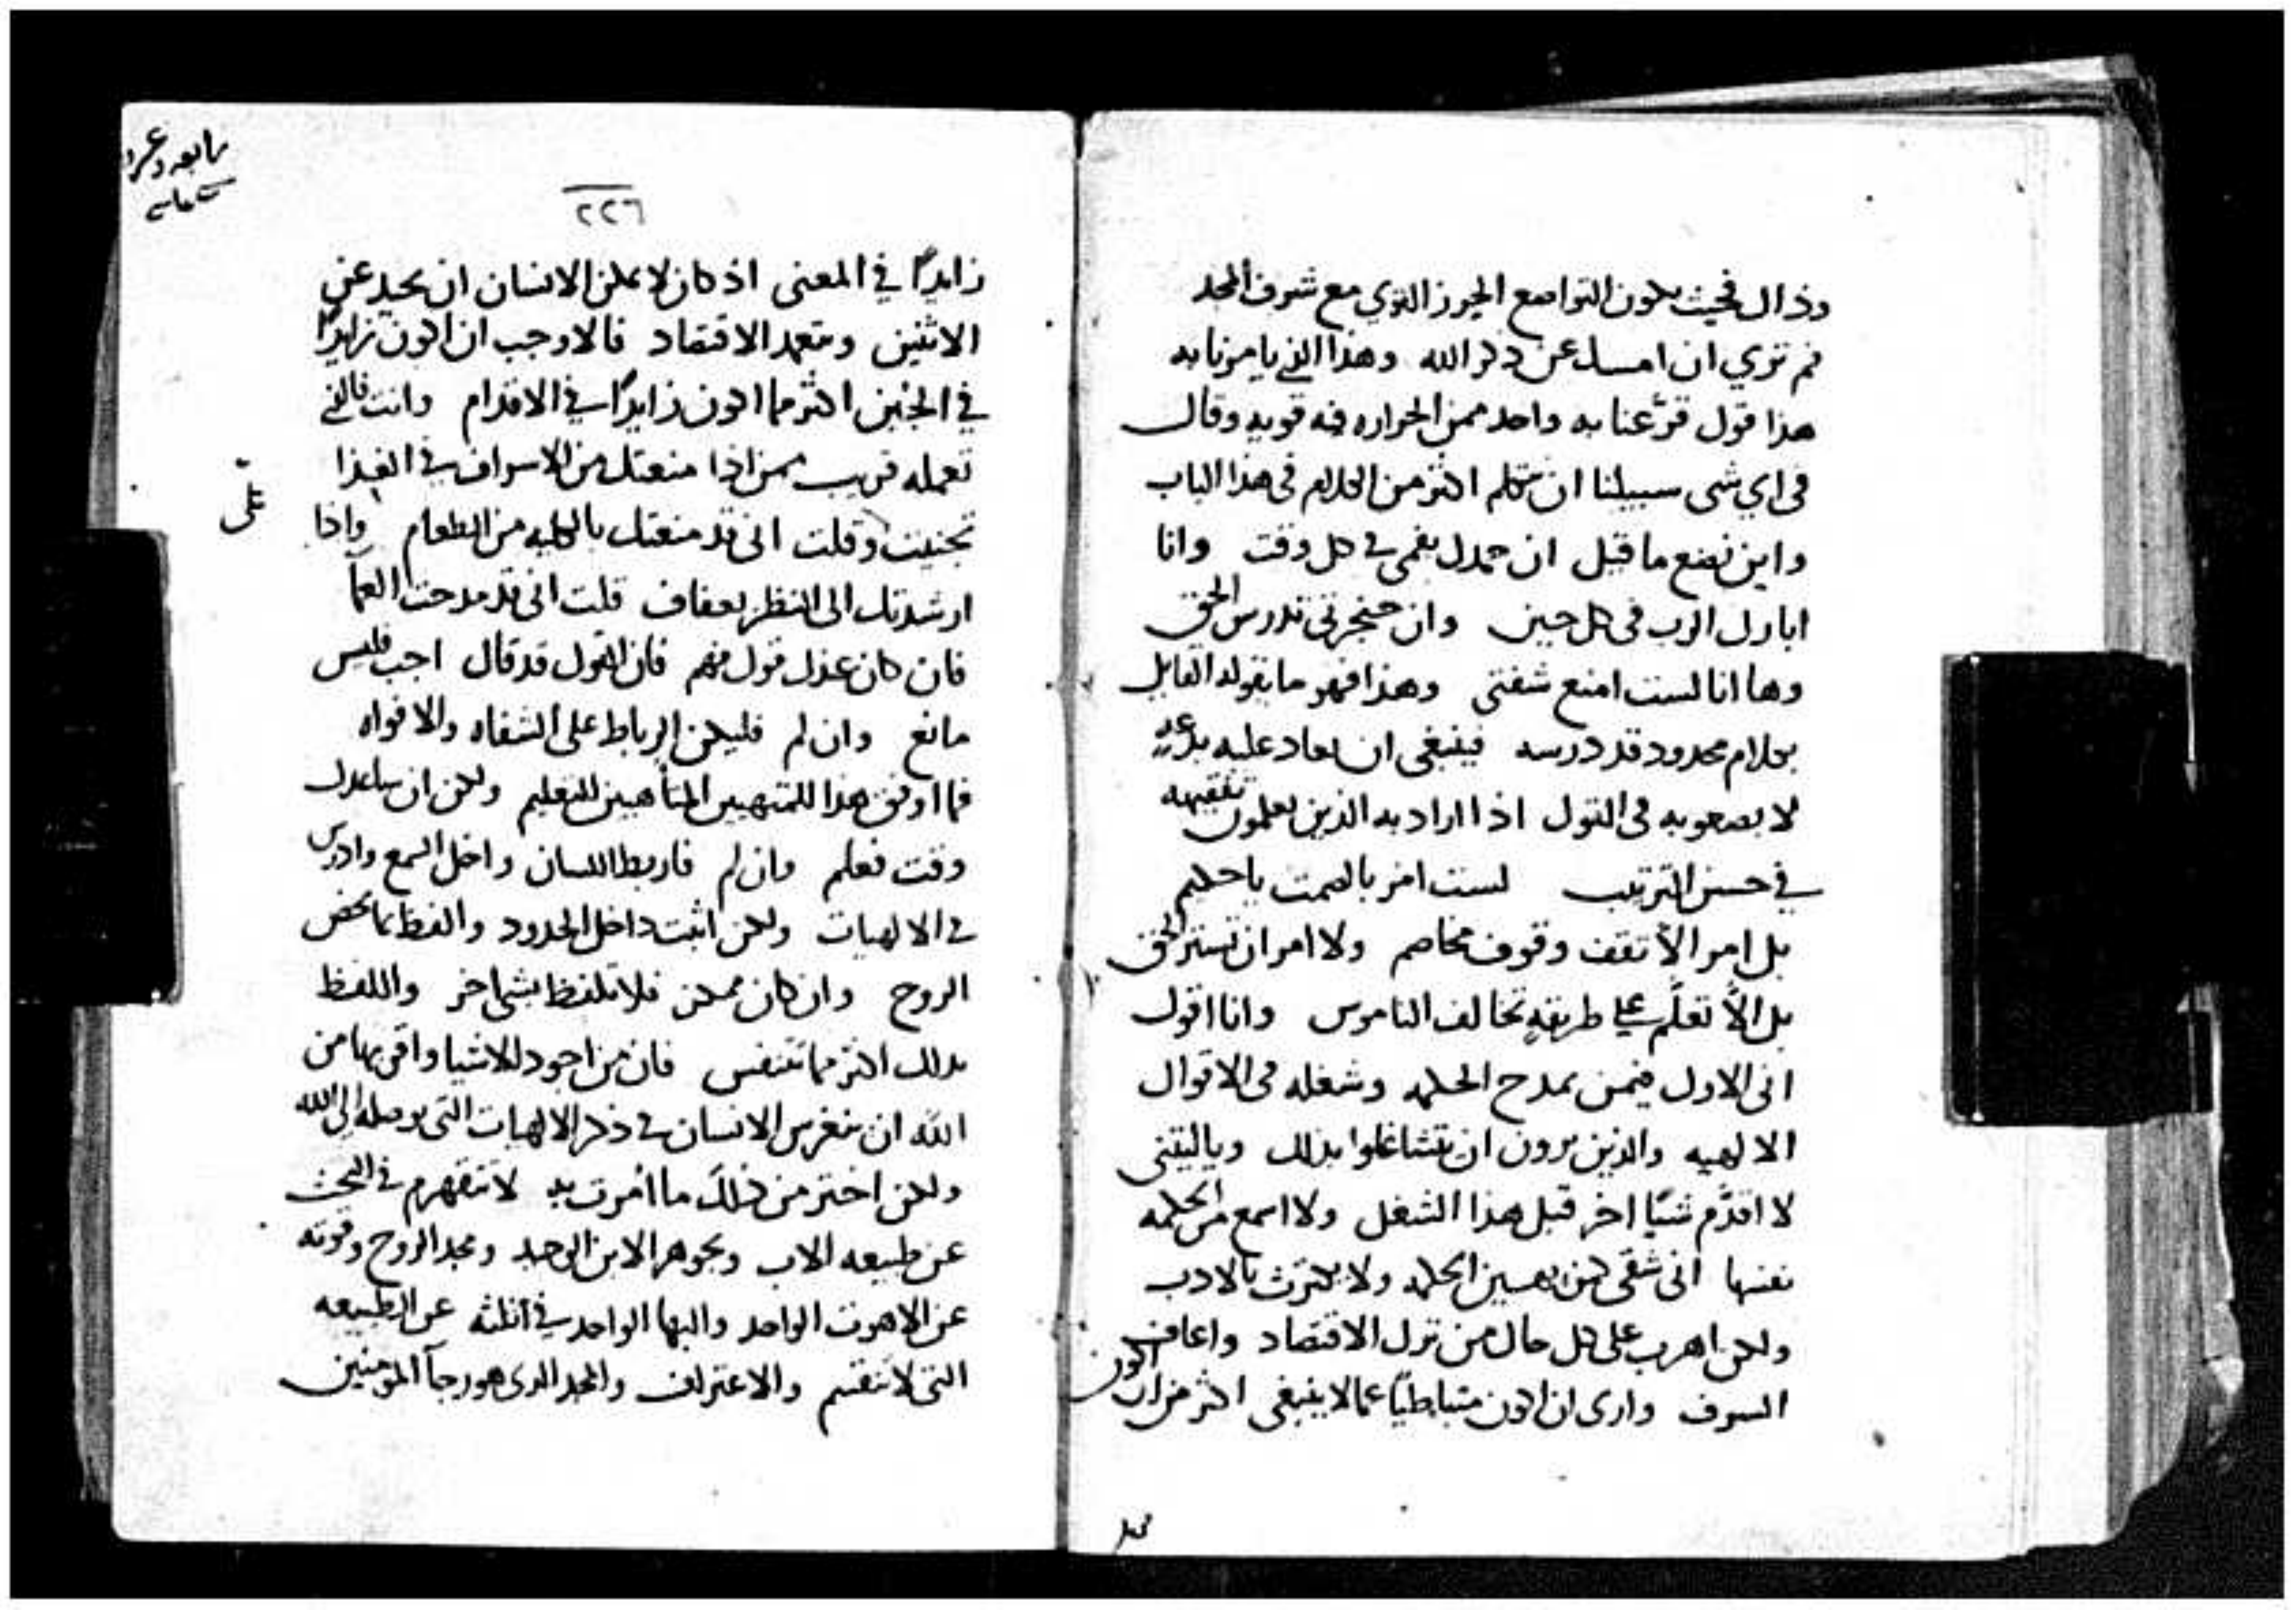 وذاك فحيث يكون التواضع الحيوز القوي مع شرف المجد
ثم تري ان امسك عن ذكر الله وهذا الذي يامرنا به
هذا قول قرّعنا به واحد ممن الحراره فيه قويه وقال
في اي شي سبيلنا ان نتكلم اكثر من الكلام في هذا الباب
واين نضع ما قيل ان حمدك بفمي في كل وقت وانا
ابارك الرب في كل حين وان حنجرتي تدرس الحق
وها انا لست امنع شفتي وهذا فهو ما يقوله القايل
بكلام محدود قد درسه فينبغي ان يعاد عليه بدعه
لا بصعوبه في القول اذا اراد به الذين يعلمون تفقيهه
في حسن الترتيب لست امر بالصمت يا حكيم
بل امر الّا تقف وقوف مخاصم ولا امر ان تستر الحق
بل الّا تعلّم على طريقهٍ تخالف الناموس وانا اقول
اني الاول فيمن يمدح الحكمه وشغله في الاقوال
الالهيه والذين يرون ان يتشاغلوا بذلك وياليتني
لا اقدّم شيًا اخر قبل هذا الشغل ولا اسمع من الحكمه
نفسها اني شقي لمن يهين الحكمه ولا يكترث بالادب
ولكن اهرب على كل حال من ترك الاقتصاد واعاف
السرف وارى ان اكون متباطيًا عما لا ينبغي اكثر من ان اكون
٢٢٦
زايدًا في المعنى اذ كان لا يمكن الانسان ان يحيد عن
الاثنين ويتعمد الاقتصاد فالاوجب ان اكون زايدًا
في الجبن اكثر مما اكون زايدًا في الاقدام وانت فالذي
تعمله قريب ممن اذا منعتك من الاسراف في الغذا
تجنيت وقلت اني قد منعتك بالكليه من الطعام واذا
ارشدتك الى النظر بعفاف قلت اني قد مدحت العمآ
فان كان عندك قول فهم فان القول قد قال اجب فليس
مانع وان لم فليكن الرباط على الشفاه والافواه
فما اوفق هذا للمتهيين المتأهبين للتعليم ولكن ان ساعدك
وقت فعلم وان لم فاربط اللسان واخل السمع وادرس
في الالهيات ولكن اثبت داخل الحدود والفظ بما يخص
الروح وان كان ممكن فلا تلفظ بشي اخر واللفظ
بذلك اكثر مما تتنفس فان من اجود الاشيا واقربها من
الله ان ينغرس الانسان في ذكر الالهيات التي توصله الى الله
ولكن اختر من ذلك ما امرت به لا تتقهرم في البحث
عن طبيعه الاب وبجوهر الابن الوحيد ومجد الروح وقوته
عن اللاهوت الواحد والبها الواحد في الثلثه عن الطبيعه
التي لا تنقسم والاعتراف والمجد الذي هو رجآ المومنين